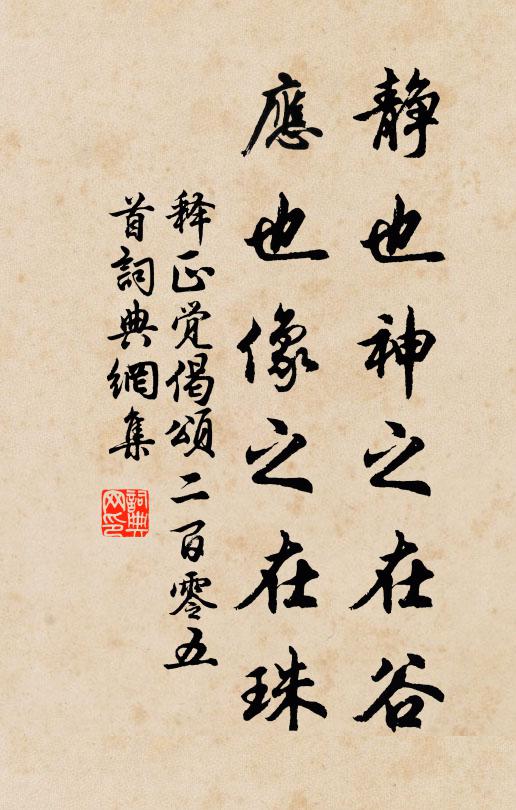 静也神之在谷
應也像之在珠
释正觉偈頌二百零五
首詞典網集
詞典網印